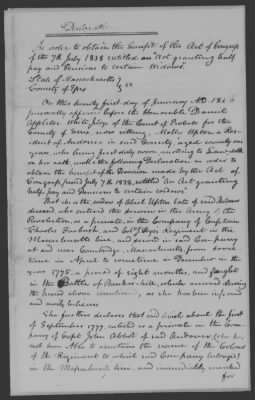 Declaration.
In order to obtain the benefit of the Act of Congress
of the 7th July 1838 entitled an "Act granting half
pay and Pensions to certain Widows"
State of Massachusetts }
County of Essex } SS
On this twenty first day of January A.D. 18
personally appears before the Honorable Daniel
Appleton White Judge of the Court of Probate for the
County of Essex, now sitting, Molly Upton a Res-
ident of Andover in said County, aged seventy one
years, who being first duly sworn according to Law, doth
on her oath, make the following Declaration in order to
obtain the benefit of the Provision made by the Act of
Congress passed July 7th 1838, entitled "An Act granting
half pay and Pensions to certain widows"
That she is the widow of Abiel Upton late of said Andover
deceased, who entered the service in the Army of the
Revolution, as a private, in the Company of Captain
Charles Furbush, and Col. Regiment in the
Massachusetts line, and served in said Company
at and near Cambridge, Massachusetts, from some
time in April to sometime in December in the
year 1775, a period of eight months, and fought
in the Battle of Bunker hill, which occurred during
the period above mentioned, as she has been informed
and verily believes
She further declares that said Abiel about the first
of September 1777, enlisted as a private in the Com-
pany of Capt John Abbot of said Andover, (she is
not now Able to mention the name of the Colonel
of the Regiment to which said Company belonged)
in the Massachusetts line, and immediately marched
for